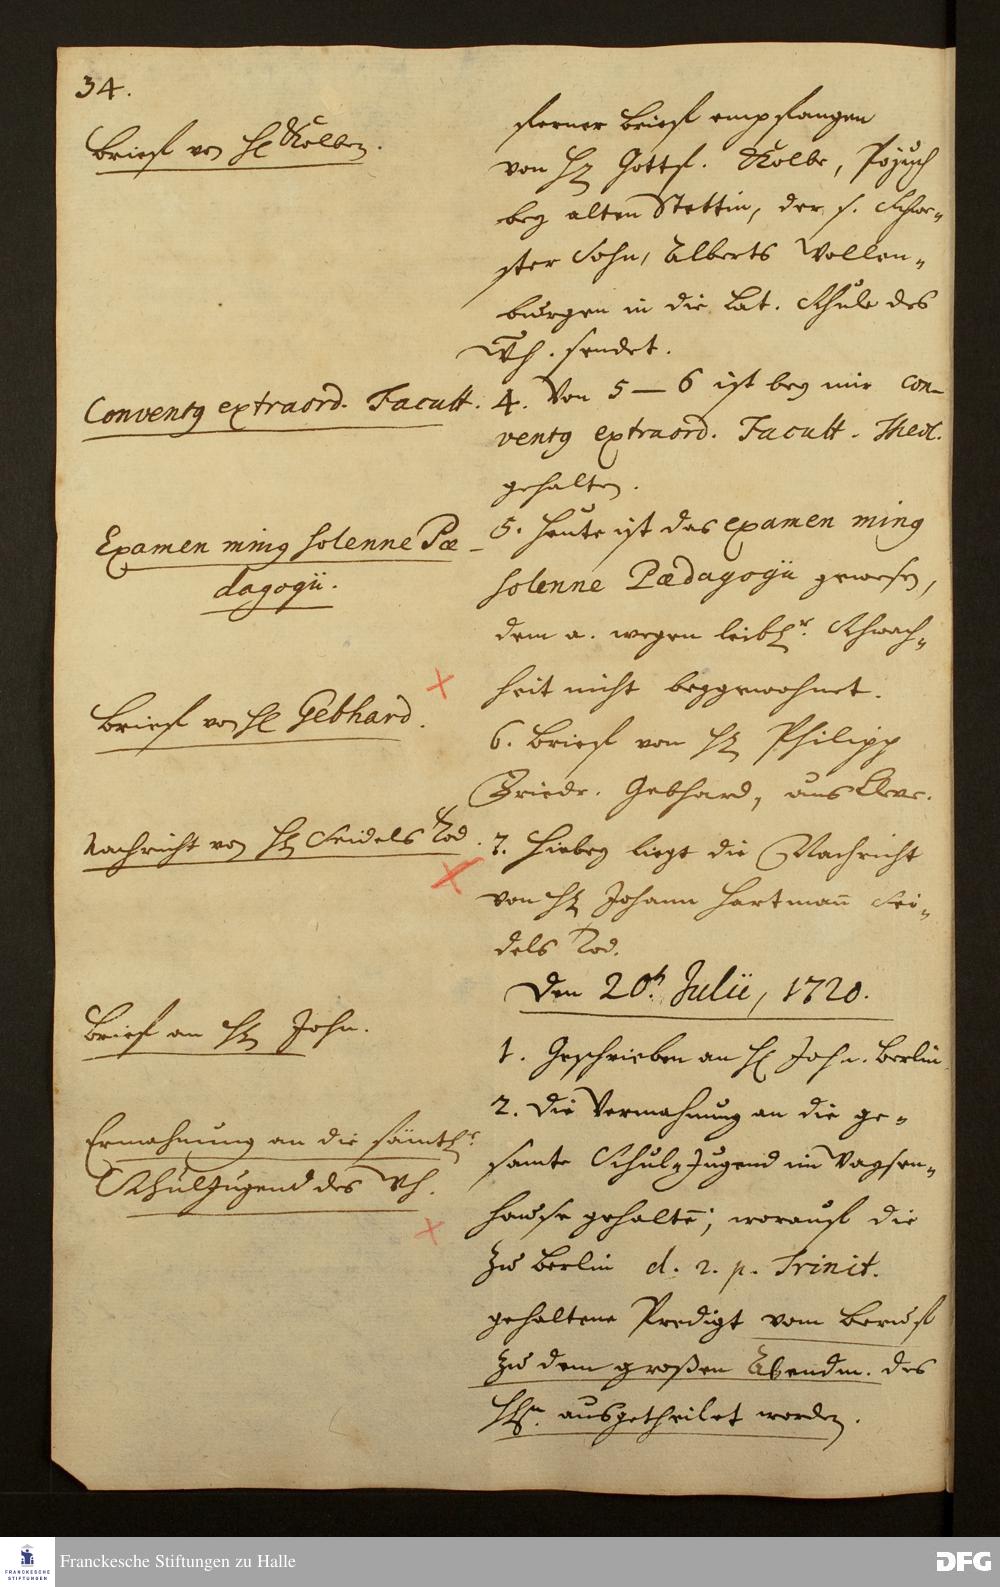 34.
Brieff von H. Kolben.
ferner Brieff empfangen
von H. Gottf. Kolbe,
bey alten Stettin, der s. Schwe-
ster Sohn, Alberts Wollen-
burgen in die Lat. Schule des
Wh. sendet.
Conventg extraord. Facult.
4. Von 5–6 ist bey mir con-
ventg extraord. Facult. Theol.
gehalten.
Examen ming solenne Pæ-
dagogii.
5. Heute ist das examen ming
solenne Pædagogii gewesen,
dem a. wegen leibl. Schwach-
heit nicht beygewohnet.
Brieff von H. Gebhard.
6. Brieff von H. Philipp
Friedr. Gebhard, aus Cleve.
Nachricht von H. Seidels Tod.
7. Hiebey liegt die Nachricht
von H. Johann Hartmann̅ Sei-
dels Tod.
Den 20t. Julii, 1720.
Brief an H. John.
1. Geschrieben an H. John. Berlin
Ermahnung an die sämtl.
Schuljugend des Wh.
2. Die Vermahnung an die ge-
samte Schul-Jugend im Waysen-
hause gehalten, worauf die
zu Berlin d. 2. p. Trinit.
gehaltene Predigt vom Beruf
zu dem großen Abendm. des
HErn. ausgetheilet worden.
Franckesche Stiftungen zu Halle
FRANCKESCHE
STIFTUNGEN
DFG